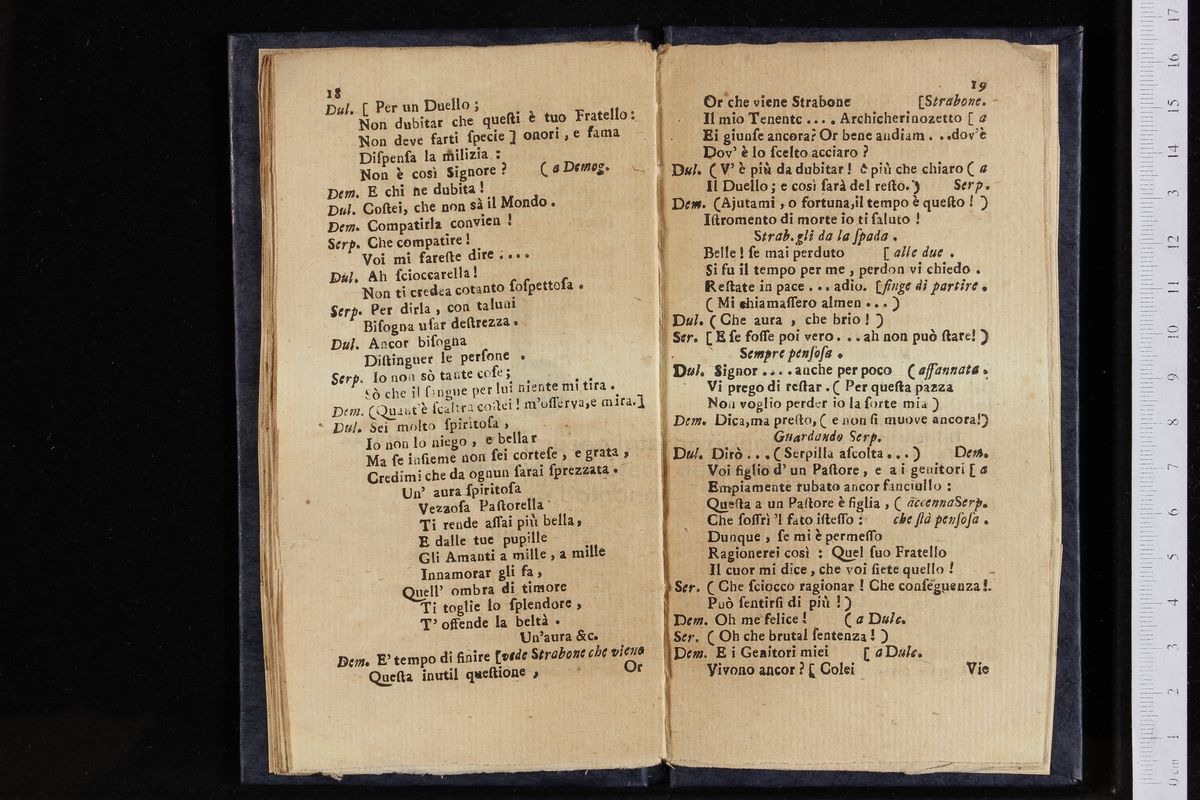 18
Dul. [ Per un Duello ;
Non dubitar che queſti è tuo Fratello:
Non deve farti ſpecie ] onori , e fama
Diſpenſa la milizia :
Non è così Signore ? ( a Demog.
Dem. E chi ne dubita !
Dul. Coſtei, che non sà il Mondo .
Dem. Compatirla convien !
Serp. Che compatire !
Voi mi fareſte dire . . . .
Dul. Ah ſcioccarella !
Non ti credea cotanto ſoſpettoſa .
Serp. Per dirla , con taluni
Biſogna uſar deſtrezza .
Dul. Ancor biſogna
Diſtinguer le perſone .
Serp. Io non sò tante coſe ;
Sò che il ſangue per lui niente mi tira .
Dem. (Quant'è ſcaltra coſtei ! m'oſſerva,e mira.]
Dul. Sei molto ſpiritoſa ,
Io non lo niego , e bella r
Ma ſe inſieme non ſei corteſe , e grata ,
Credimi che da ognun ſarai ſprezzata .
Un' aura ſpiritoſa
Vezzoſa Paſtorella
Ti rende aſſai più bella,
E dalle tue pupille
Gli Amanti a mille , a mille
Innamorar gli fa ,
Quell' ombra di timore
Ti toglie lo ſplendore ,
T' offende la beltà .
Un'aura &c.
Dem. E' tempo di finire [vede Strabone che viene
Queſta inutil queſtione ,
Or
19
Or che viene Strabone [Strabone.
Il mio Tenente . . . . Archicherinozetto [ a
Ei giunſe ancora? Or bene andiam . . .dov'è
Dov' è lo ſcelto acciaro ?
Dul. ( V' è più da dubitar ! è più che chiaro ( a
Il Duello ; e così ſarà del reſto.) Serp.
Dem. (Ajutami , o fortuna,il tempo è queſto ! )
Iſtromento di morte io ti ſaluto !
Strab.gli da la ſpada .
Belle ! ſe mai perduto [ alle due .
Si fu il tempo per me , perdon vi chiedo .
Reſtate in pace . . . adio. [finge di partire .
( Mi chiamaſſero almen . . . )
Dul. ( Che aura , che brio ! )
Ser. [ E ſe foſſe poi vero . . . ah non può ſtare! )
Sempre penſoſa .
Dul. Signor . . . . anche per poco ( affannata .
Vi prego di reſtar . ( Per queſta pazza
Non voglio perder io la ſorte mia )
Dem. Dica,ma preſto, ( e non ſi muove ancora!)
Guardando Serp.
Dul. Dirò . . . ( Serpilla aſcolta . . . ) Dem.
Voi figlio d' un Paſtore , e a i genitori [ a
Empiamente rubato ancor fanciullo :
Queſta a un Paſtore è figlia , ( accennaSerp.
Che ſoffrì 'l fato iſteſſo : che ſtà penſoſa .
Dunque , ſe mi è permeſſo
Ragionerei così : Quel ſuo Fratello
Il cuor mi dice , che voi ſiete quello !
Ser. ( Che ſciocco ragionar ! Che conſeguenza!.
Può ſentirſi di più ! )
Dem. Oh me felice ! ( a Dulc.
Ser. ( Oh che brutal ſentenza ! )
Dem. E i Genitori miei [ a Dulc.
Vivono ancor ? [ Colei
Vie
0 cm 1 2 3 4 5 6 7 8 9 10 11 12 13 14 15 16 17